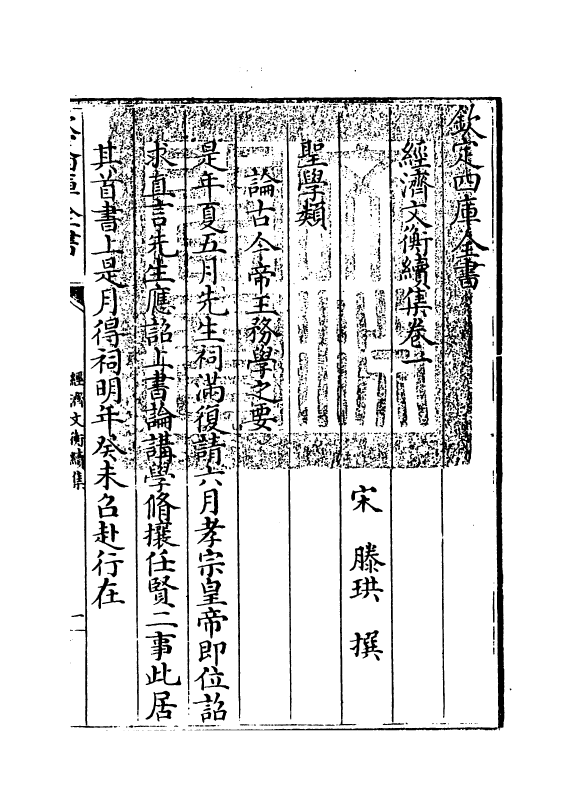 欽定四庫全書
經濟文衡續集卷一
宋 滕珙 撰
聖學類
論古今帝王務學之要
是年夏五月先生祠滿復請六月孝宗皇帝即位詔
求直言先生應詔上書論講學脩攘任賢二事此居
其首書上是月得祠明年癸未召赴行在
經濟文衡續集
一